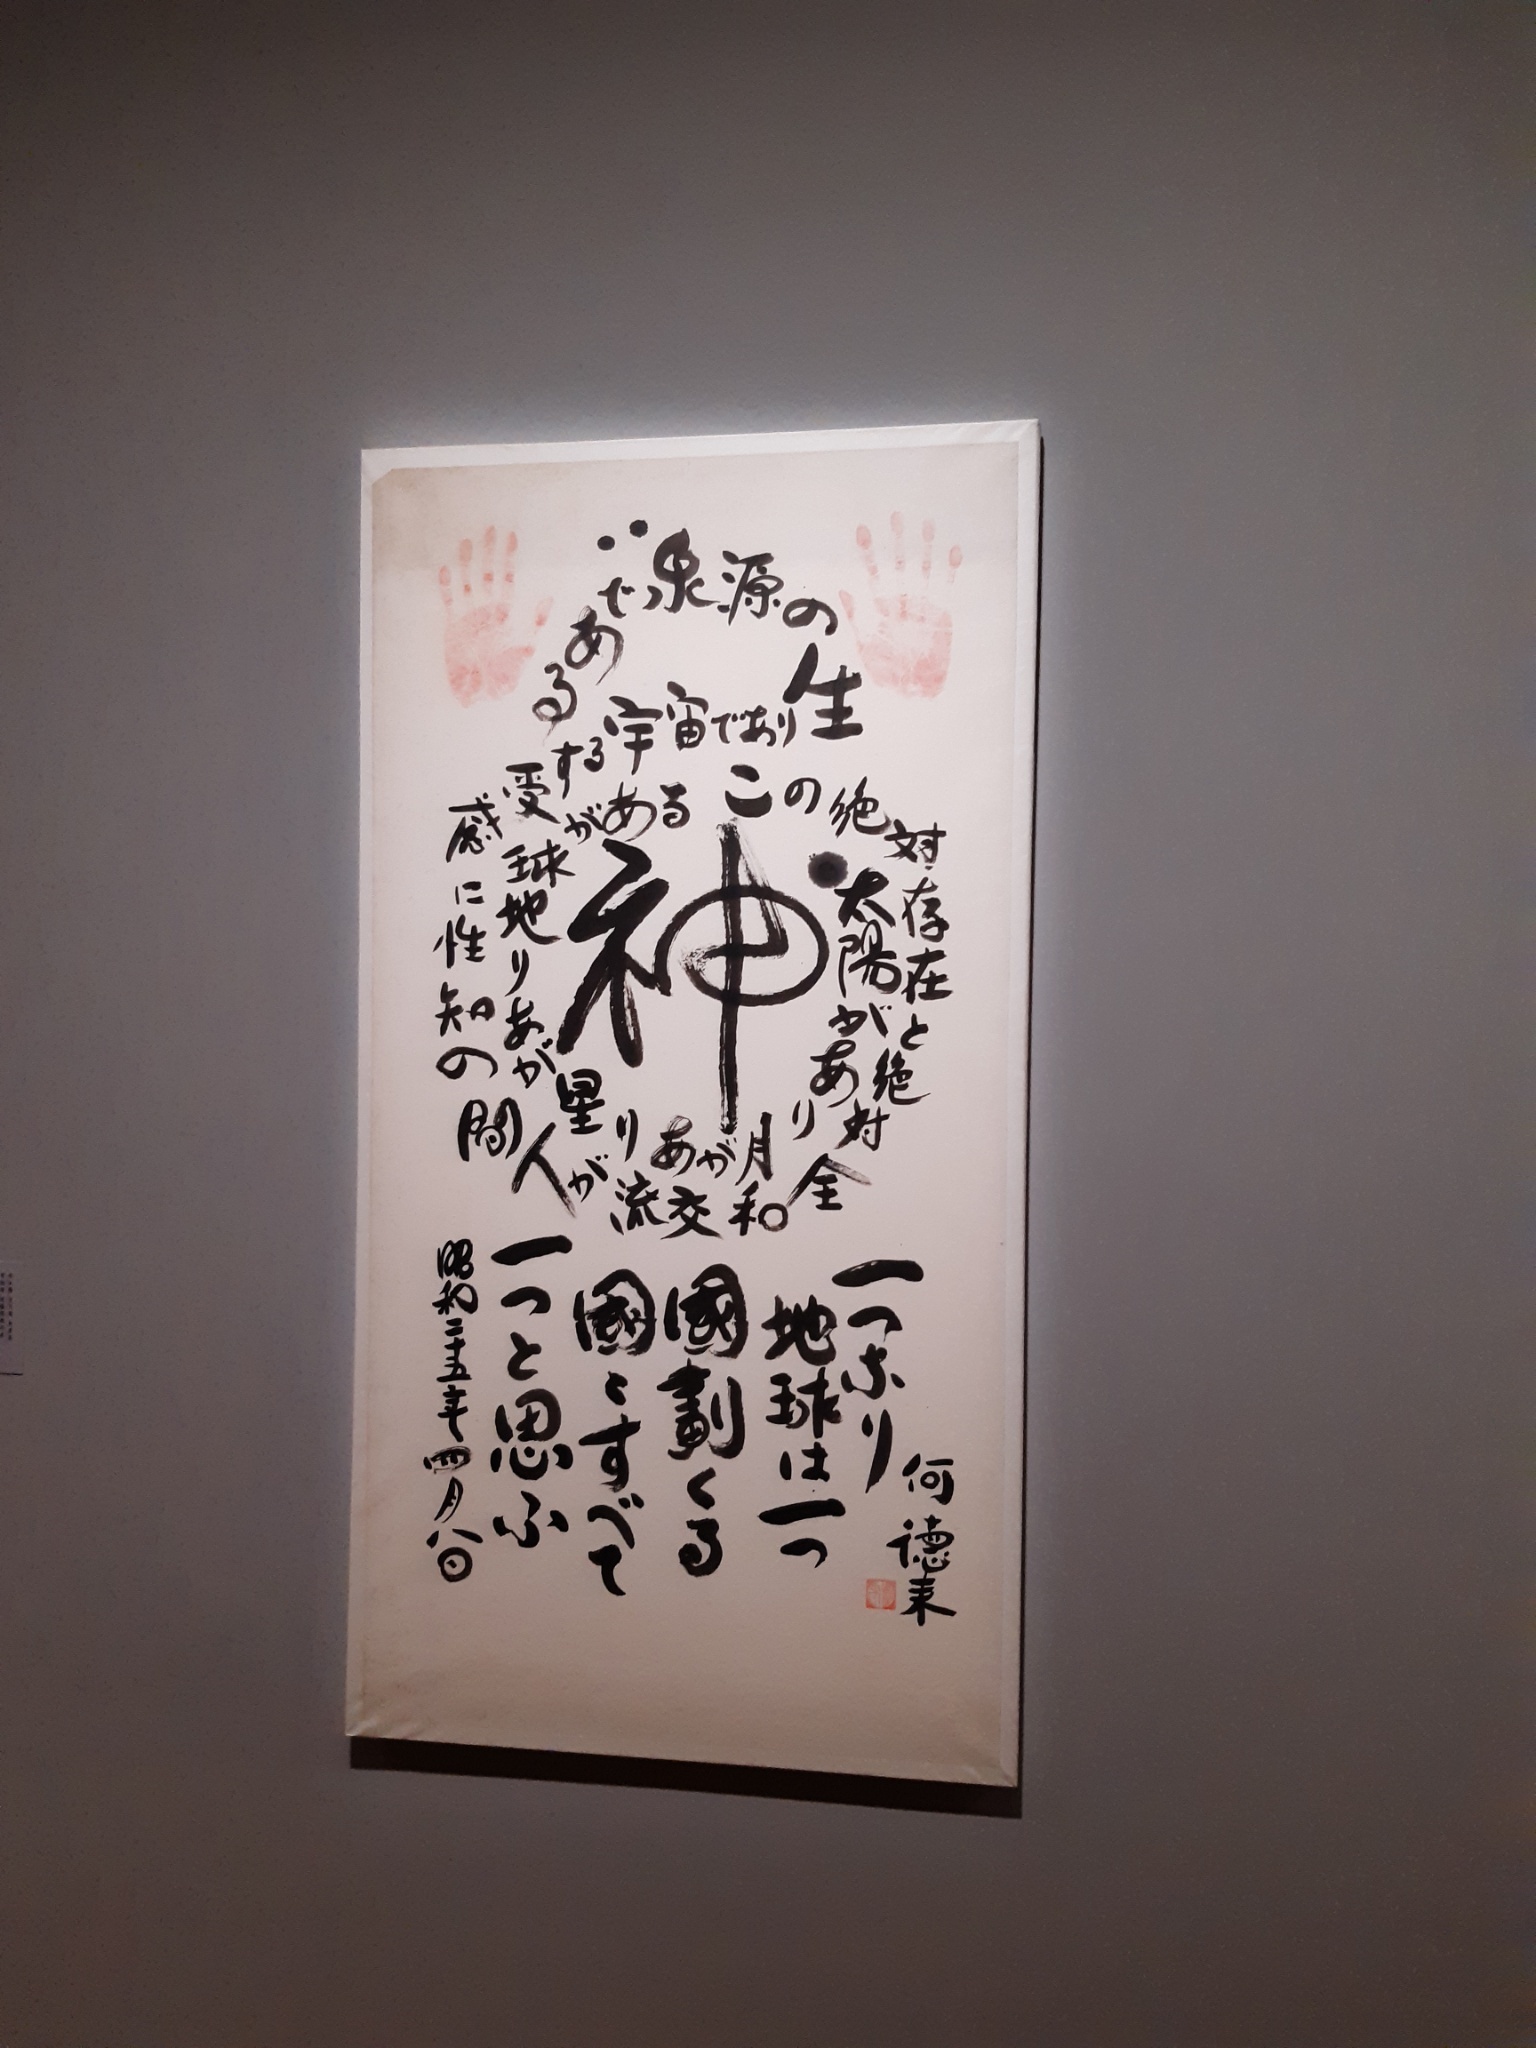 神
太陽があり月があり星があり地球がある
この絶対存在と絶対全和交流が人間の知性に感受する宇宙であり生の源泉である
何德来
一つなり
地球は一つ
國劃くる
國々すべて
一つと思ふ
昭和二十五年四月八日